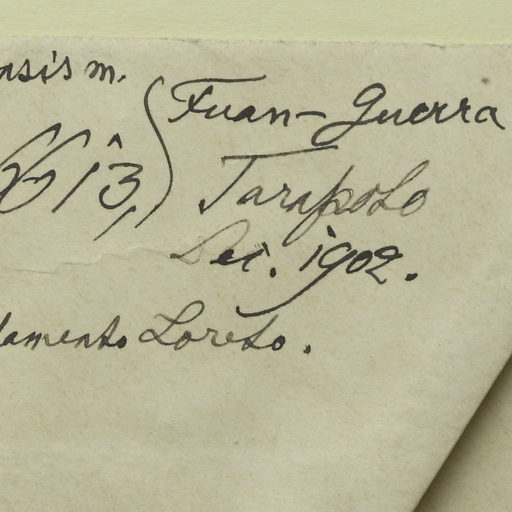 ensis m.
Fuan-Guerra
6613,
Tarapoto
Dec. 1902.
tamento Loreto.